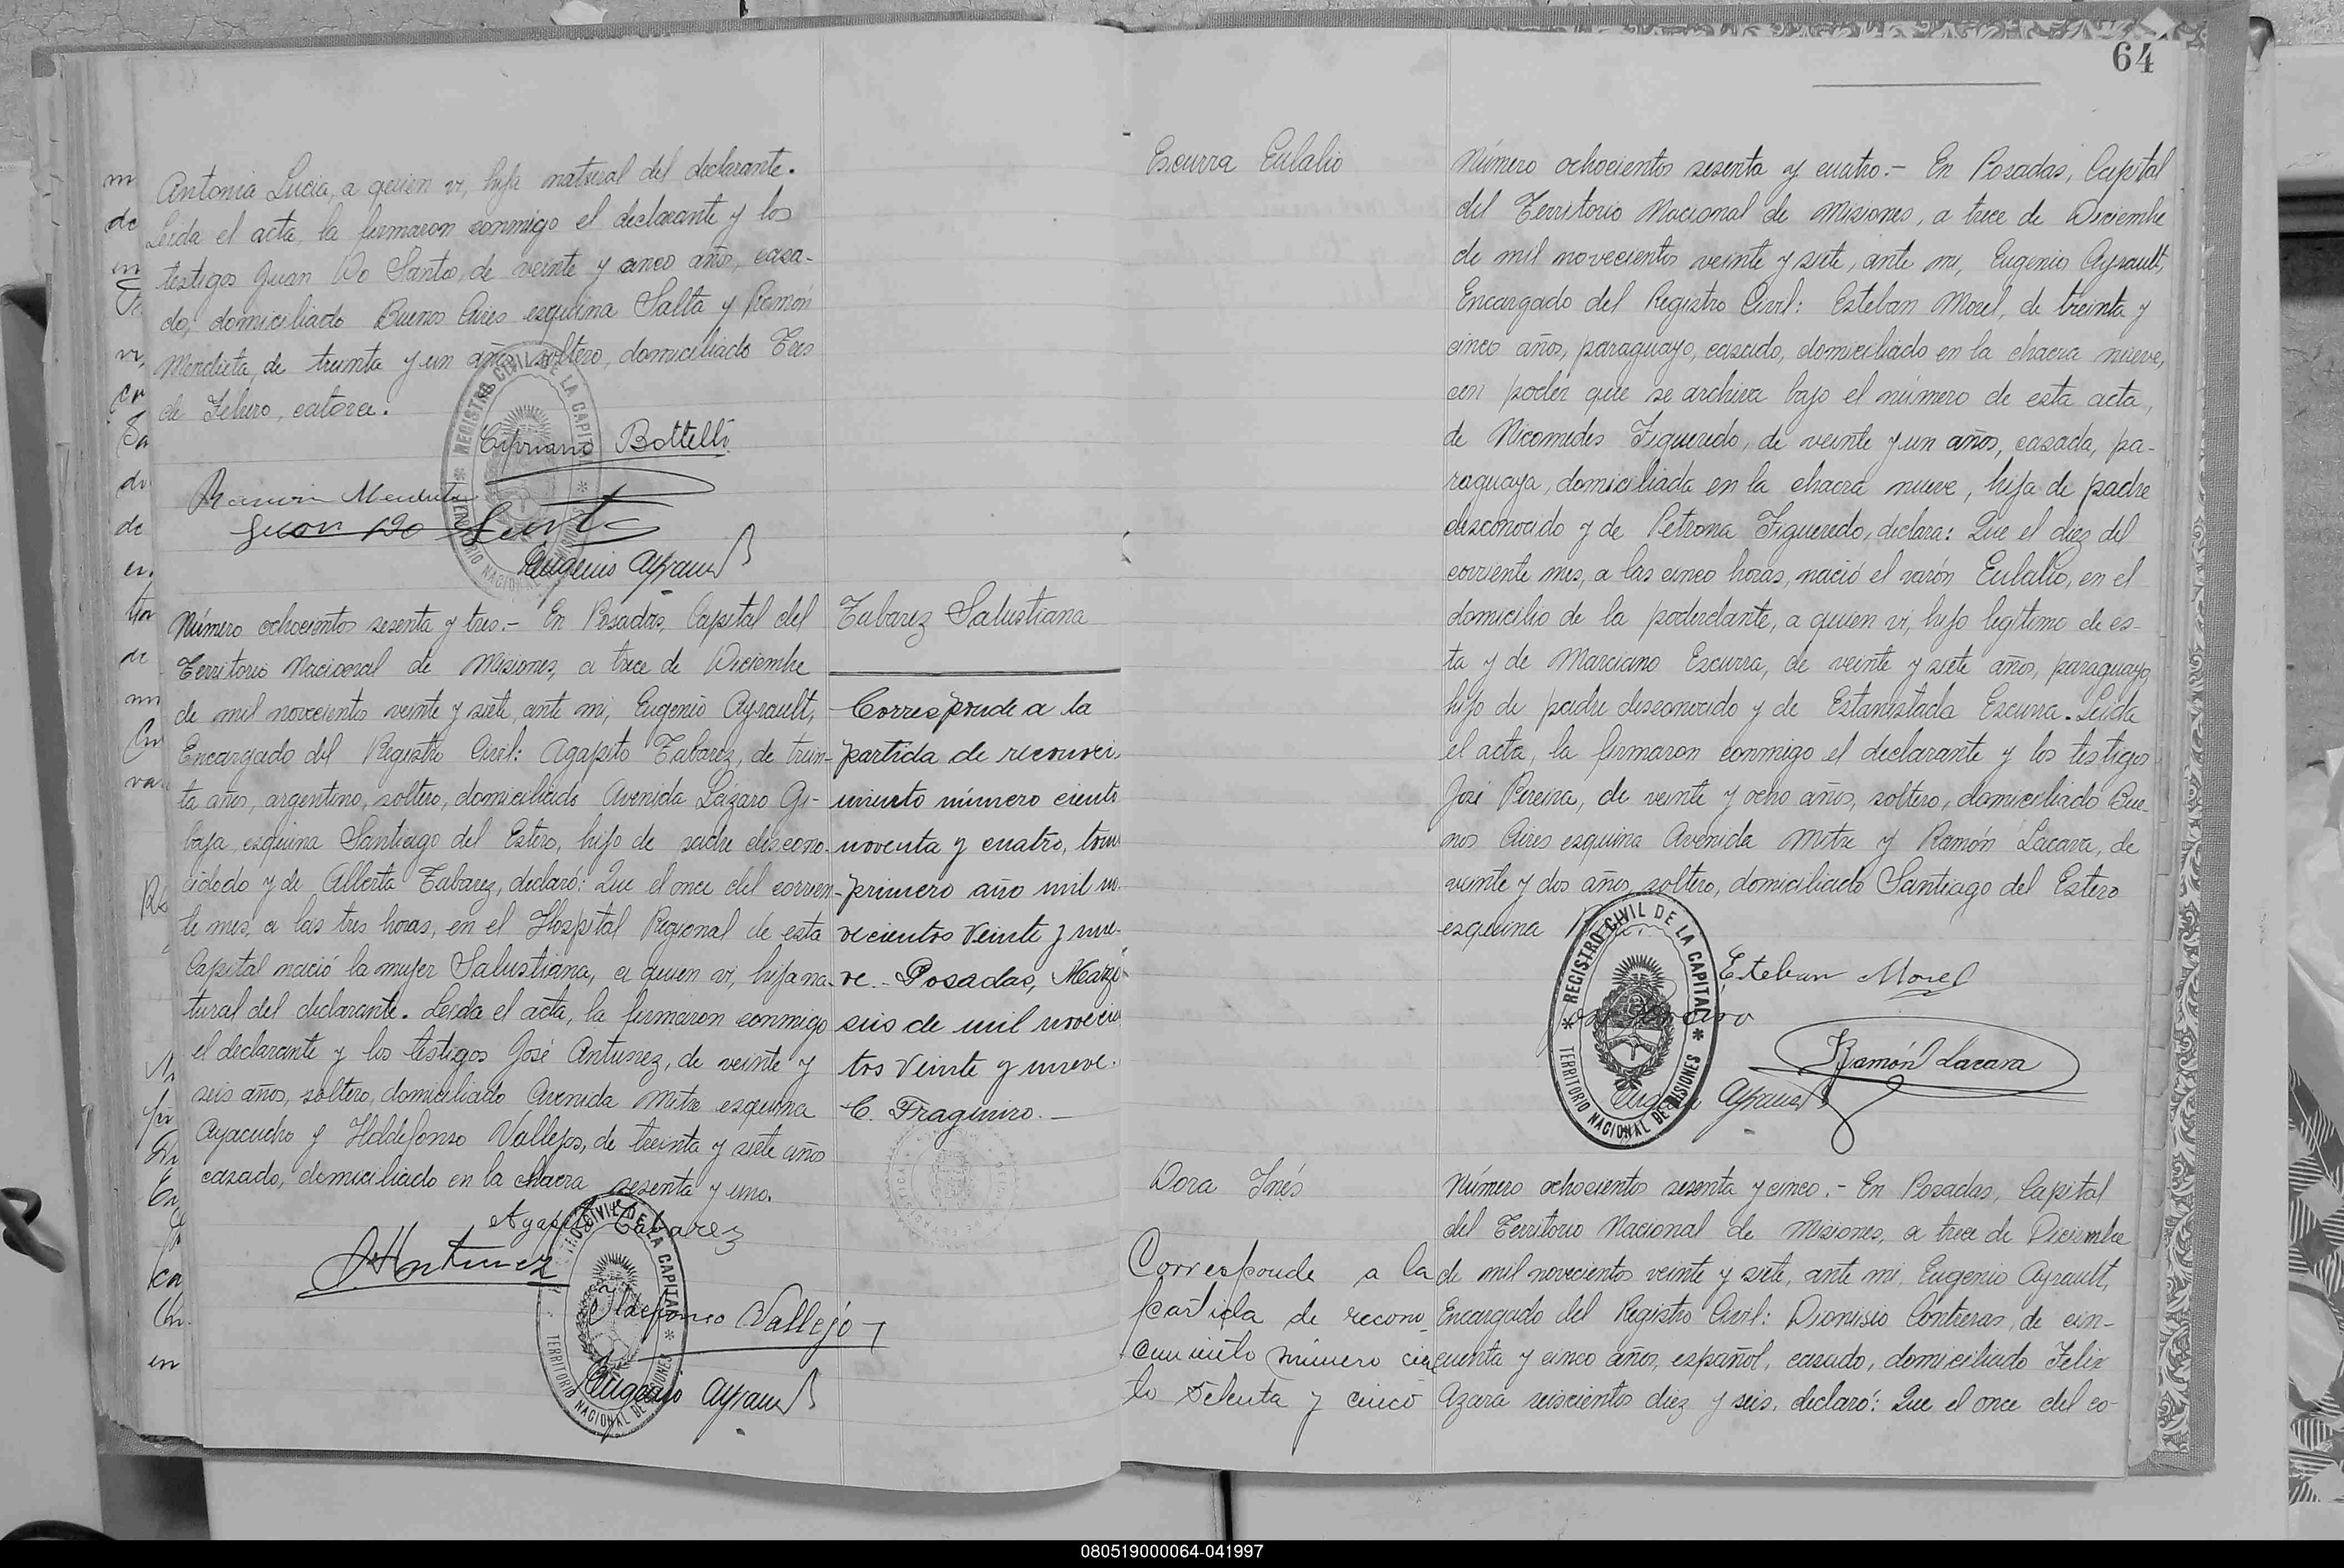 Antonia Lucia, a quien vi, hija natural del declarante.
Leida el acta, la firmaron conmigo el declarante y los
testigos Juan Do Santo, de veinte y cinco años, casa-
do, domiciliado Buenos Aires esquina Salta y Ramón
Mendieta, de treinta y un años, soltero, domiciliado Tres
de Febrero, catorce.
Cipriano Bottelli
Ramón Mendieta
Juan Do Santo
Eugenio Ayrault
REGISTRO CIVIL DE LA CAPITAL
TERRITORIO NACIONAL DE MISIONES
Número ochocientos sesenta y tres.- En Posadas, Capital del
Territorio Nacional de Misiones, a trece de Diciembre
de mil novecientos veinte y siete, ante mi, Eugenio Ayrault,
Encargado del Registro Civil: Agapito Tabarez, de trein-
ta años, argentino, soltero, domiciliado Avenida Lázaro Gi-
baja, esquina Santiago del Estero, hijo de padre descono-
cidodo y de Alberta Tabarez, declaró: Que el once del corrien-
te mes, a las tres horas, en el Hospital Regional de esta
Capital nació la mujer Salustiana, a quien vi, hija na-
tural del declarante. Leida el acta, la firmaron conmigo
el declarante y los testigos José Antunez, de veinte y
seis años, soltero, domiciliado Avenida Mitre esquina
Ayacucho y Ildelfonso Vallejos, de treinta y siete años
casado, domiciliado en la chacra sesenta y uno.
Agapito Tabarez
JAntunez
Ildefonso Vallejo
Eugenio Ayrault
REGISTRO CIVIL DE LA CAPITAL
TERRITORIO NACIONAL DE MISIONES
Tabarez Salustiana
Corresponde a la
partida de reconoci
miento número ciento
noventa y cuatro, tomo
primero año mil no
vecientos veinte y nue-
ve.- Posadas, Marzo
seis de mil novecien
tos veinte y nueve.
C. Fragueiro.-
64
Escurra Eulalio
Número ochocientos sesenta y cuatro.- En Posadas, Capital
del Territorio Nacional de Misiones, a trece de Diciembre
de mil novecientos veinte y siete, ante mi, Eugenio Ayrault,
Encargado del Registro Civil: Esteban Morel, de treinta y
cinco años, paraguayo, casado, domiciliado en la chacra nueve,
con poder que se archiva bajo el número de esta acta,
de Nicomedes Figueredo, de veinte y un años, casada, pa-
raguaya, domiciliada en la chacra nueve, hija de padre
desconocido y de Petrona Figueredo, declara: Que el diez del
corriente mes, a las cinco horas, nació el varón Eulalio, en el
domicilio de la poderdante, a quien vi, hijo legítimo de es-
ta y de Marciano Escurra, de veinte y siete años, paraguayo,
hijo de padre desconocido y de Estanislada Escurra. Leida
el acta, la firmaron conmigo el declarante y los testigos
José Pereira, de veinte y ocho años, soltero, domiciliado Bue-
nos Aires esquina Avenida Mitre y Ramón Lacava, de
veinte y dos años, soltero, domiciliado Santiago del Estero
esquina
Esteban Morel
Ramón Lacava
Eugenio Ayrault
REGISTRO CIVIL DE LA CAPITAL
TERRITORIO NACIONAL DE MISIONES
Dora Inés
Corresponde a la
partida de recono
cimiento número cien
to setenta y cinco
Número ochocientos sesenta y cinco.- En Posadas, Capital
del Territorio Nacional de Misiones, a trece de Diciembre
de mil novecientos veinte y siete, ante mi, Eugenio Ayrault,
Encargado del Registro Civil: Dionisio Contreras, de cin-
cuenta y cinco años, español, casado, domiciliado Felix
Azara seiscientos diez y seis, declaró: Que el once del co-
080519000064-041997